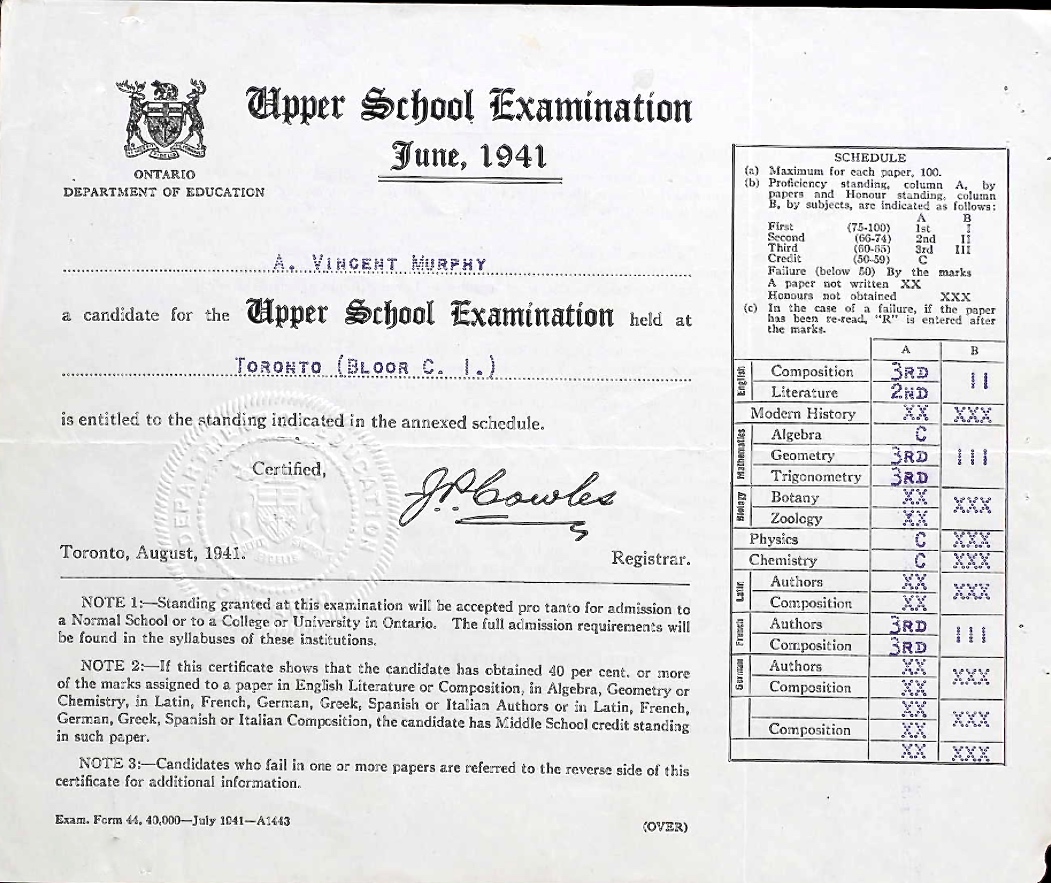 Upper School Examination
June, 1941
ONTARIO
DEPARTMENT OF EDUCATION
A. VINCENT MURPHY
a candidate for the Upper School Examination held at
TORONTO (BLOOR C. I.)
is entitled to the standing indicated in the annexed schedule.
Certified,
J.P. Cowles
Toronto, August, 1941.
Registrar.
NOTE 1:—Standing granted at this examination will be accepted pro tanto for admission to
a Normal School or to a College or University in Ontario. The full admission requirements will
be found in the syllabuses of these institutions.
NOTE 2:—If this certificate shows that the candidate has obtained 40 per cent. or more
of the marks assigned to a paper in English Literature or Composition, in Algebra, Geometry or
Chemistry, in Latin, French, German, Greek, Spanish or Italian Authors or in Latin, French,
German, Greek, Spanish or Italian Composition, the candidate has Middle School credit standing
in such paper.
NOTE 3:—Candidates who fail in one or more papers are referred to the reverse side of this
certificate for additional information.
Exam. Form 44, 40,000—July 1941—A1443
(OVER)
SCHEDULE
(a) Maximum for each paper, 100.
(b) Proficiency standing, column A, by
papers and Honour standing, column
B, by subjects, are indicated as follows:
A B
First (75-100) 1st I
Second (66-74) 2nd II
Third (60-65) 3rd III
Credit (50-59) C
Failure (below 50) By the marks
A paper not written XX
Honours not obtained XXX
(c) In the case of a failure, if the paper
has been re-read, "R" is entered after
the marks.
A B
English
Composition 3RD II
Literature 2ND
Modern History XX XXX
Mathematics
Algebra C
Geometry 3RD III
Trigonometry 3RD
Biology
Botany XX XXX
Zoology XX
Physics C XXX
Chemistry C XXX
Latin
Authors XX XXX
Composition XX
French
Authors 3RD III
Composition 3RD
German
Authors XX XXX
Composition XX
XX XXX
Composition XX
XX XXX